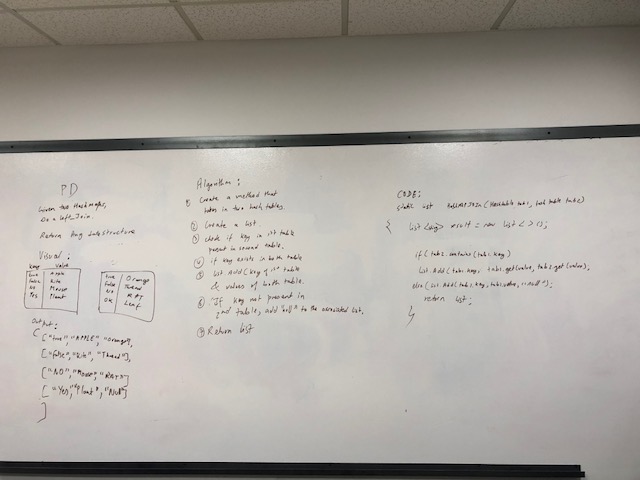 PD
Given two Hashmaps,
Do a left_Join.
Return Any datastructure
Visual:
Key Value
true Apple
false Kite
NO Mouse
Yes Plant
true Orange
false Thread
NO RAT
OK Leaf
Output:
[ ["true", "APPLE", "Orange"],
["false", "Kite", "Thread"],
["NO", "Mouse", "RAT"]
["Yes", "Plant", "Null"]
]
Algorithm:
① Create a method that
takes in two hash tables.
② Create a list.
③ check if key in 1st table
present in second table.
④ if key exists in both table
⑤ List.Add(key of 1st table
& values of both table.
⑥ If key not present in
2nd table, add "null" to the associated list.
⑦ Return list
CODE:
static list HashMapJoin(Hashtable tab1, hash table tab2)
{ List<> result = new list<>();
if(tab2.contains(tab1.key)
List.Add(tab1.key, tab1.get(value, tab2.get(value);
else(list.Add(tab1.key, tab1.value, "null");
return list;
}